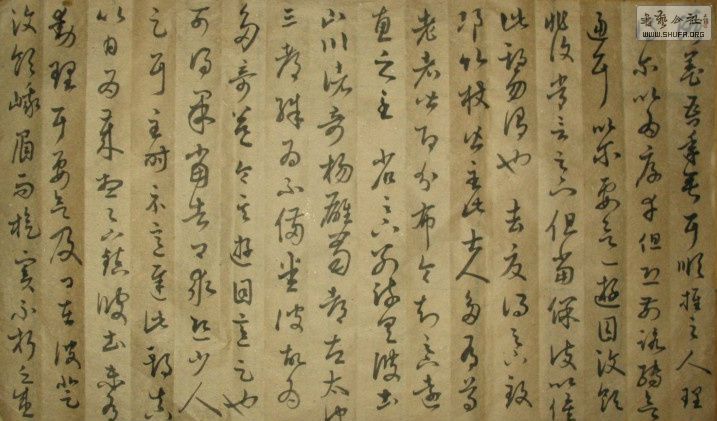 養吾年垂耳順推之人理
尔以為厚幸但恐前路轉欲
逼耳以尔要欲一遊目汶領
非復常言足下但當保護以俟
此期勿謂也 去夏得足下致
邛竹杖皆至此士人多有尊
老者皆即分布令知足下遠
惠之至 省足下別疏具彼土
山川諸奇楊雄蜀都左太沖
三都殊為不備悉彼故為
多奇益令其遊目意足也
可得果當告卿求迎少人
足耳至時示意遲此期真
以日為歲想足下鎮彼土未有
動理耳要欲及卿在彼登
汶領峨眉而旋實不朽之盛
WWW.SHUFA.ORG